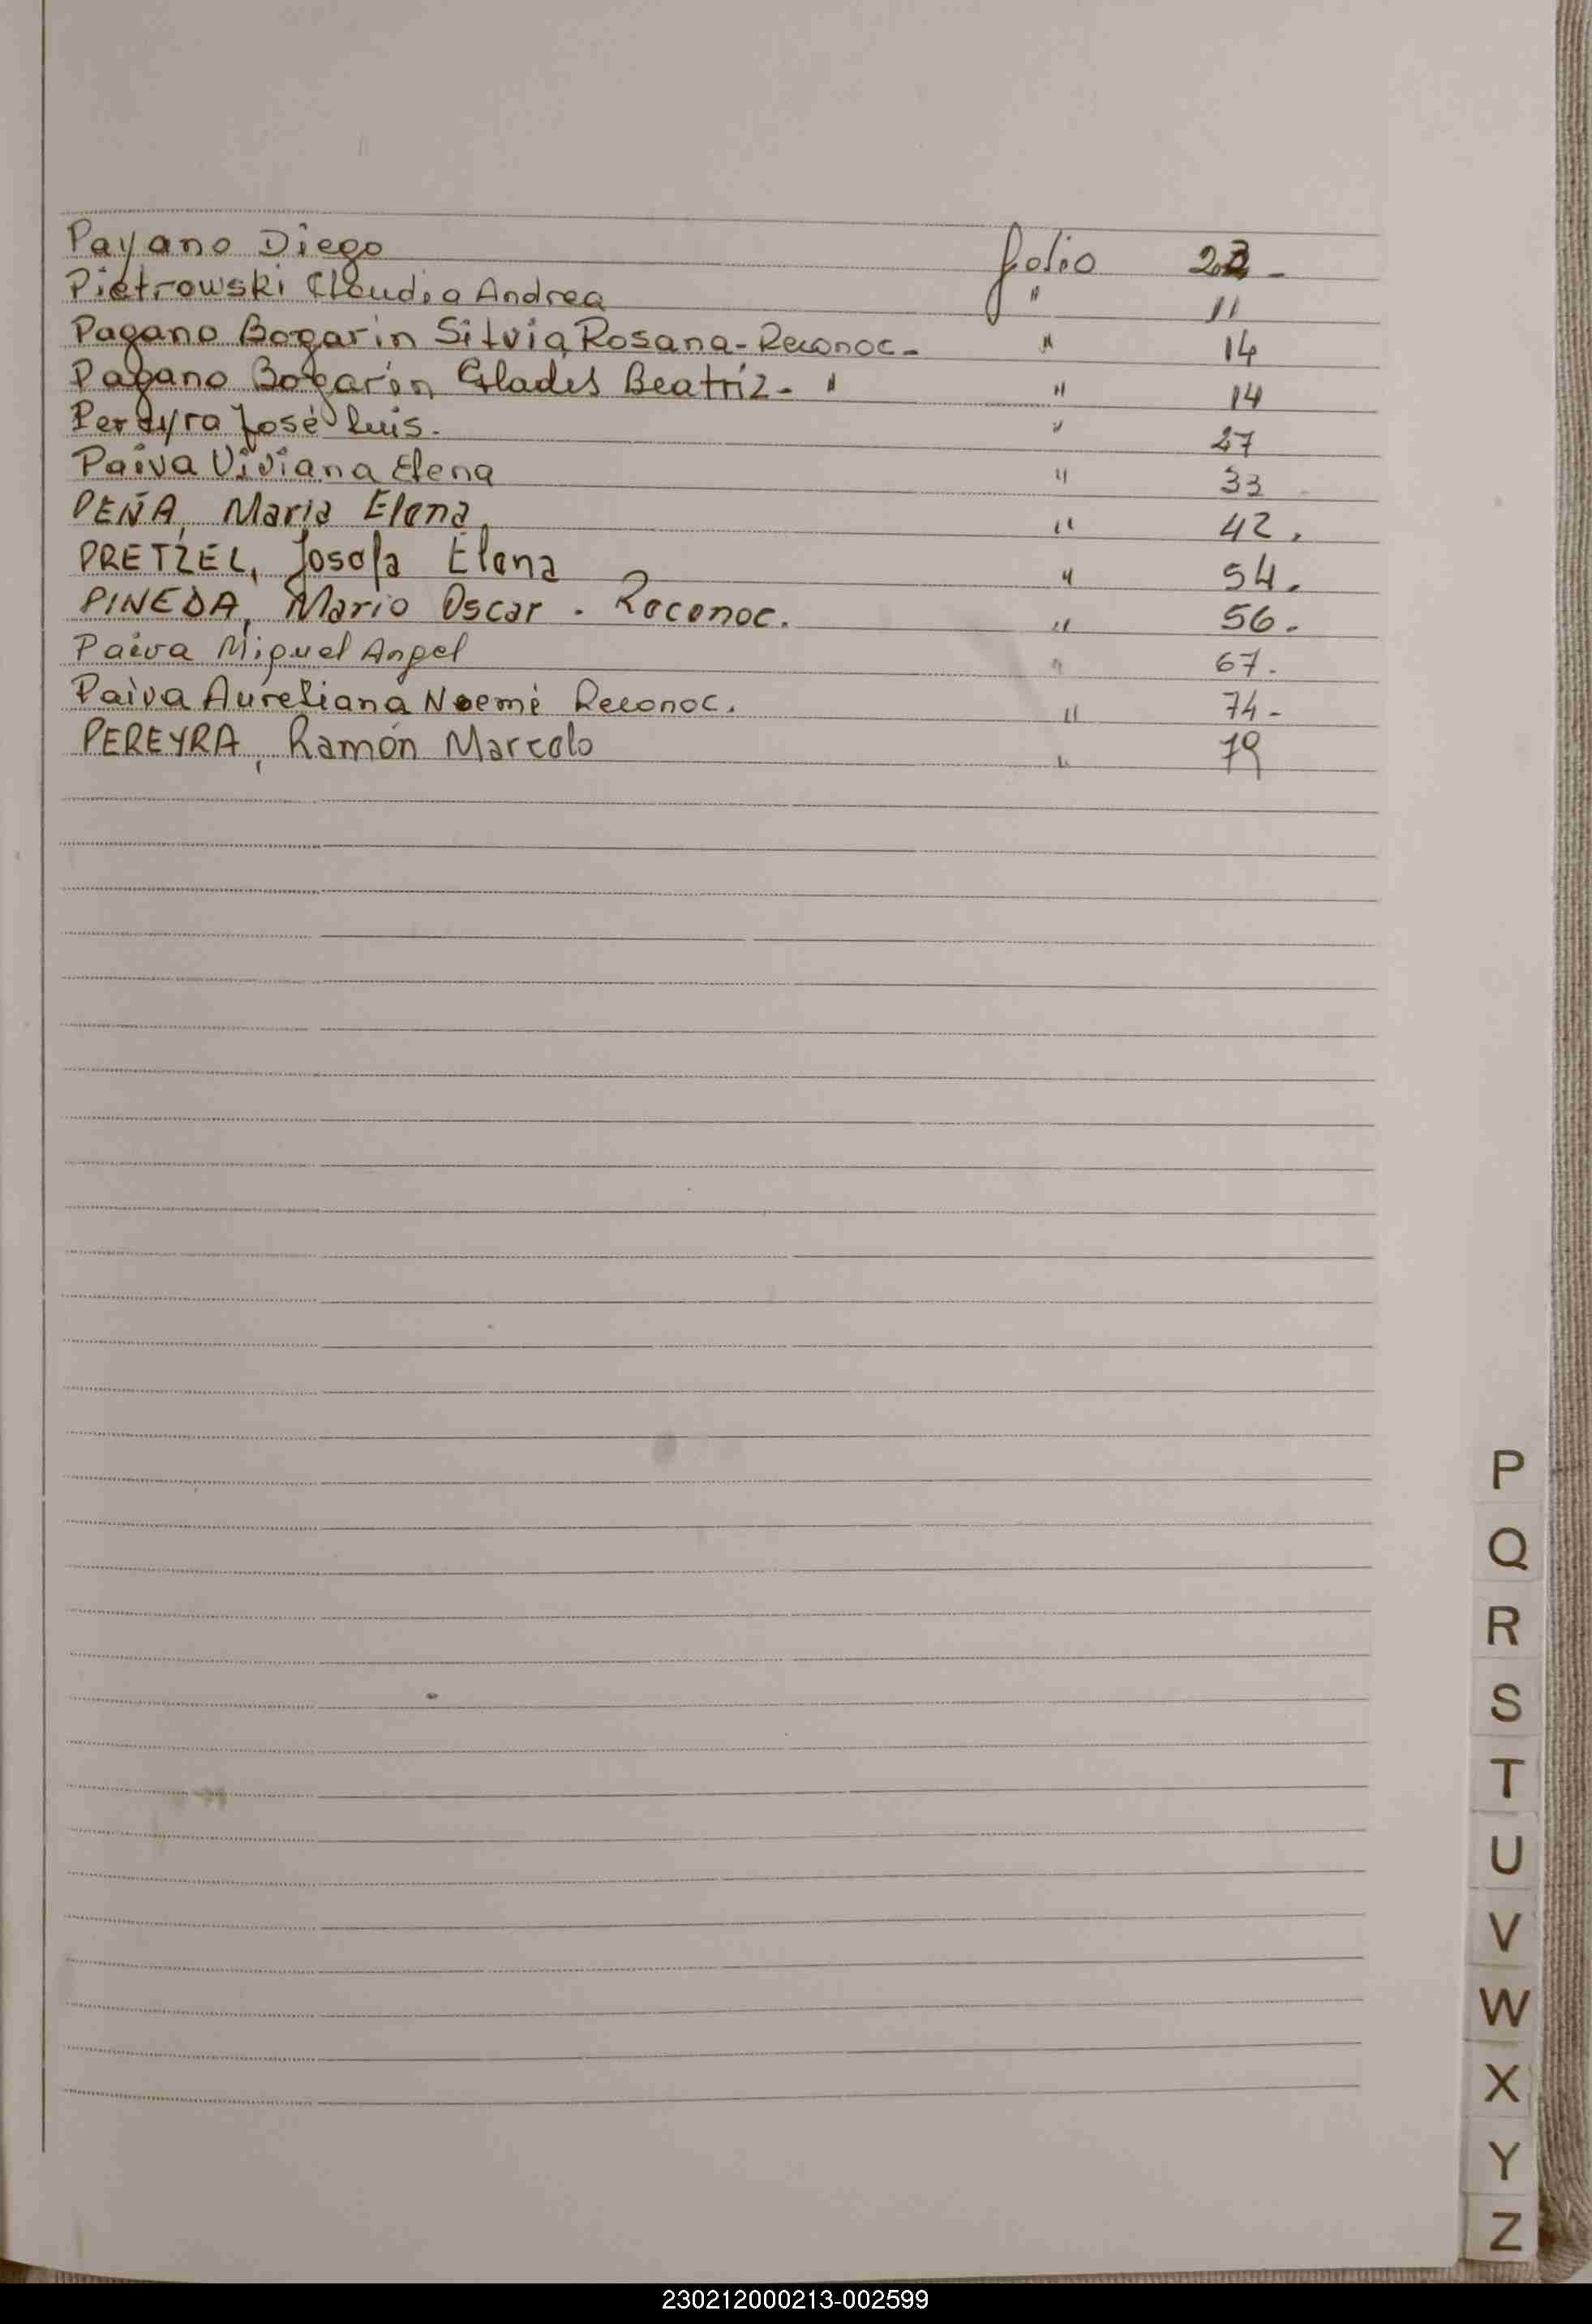 Payano Diego folio
Pietrowski Claudia Andrea " 11
Pagano Bogarin Silvia Rosana - Reconoc. - " 14
Pagano Bogarin Glades Beatriz - " " 14
Pereyra José Luis. " 27
Paiva Viviana Elena " 33
PEÑA, Maria Elena, " 42.
PRETZEL, Josefa Elena " 54.
PINEDA, Mario Oscar. Reconoc. " 56.
Paiva Miguel Angel " 67.
Paiva Aureliana Noemi Reconoc. " 74-
PEREYRA, Ramón Marcelo " 79
P
Q
R
S
T
U
V
W
X
Y
Z
230212000213-002599